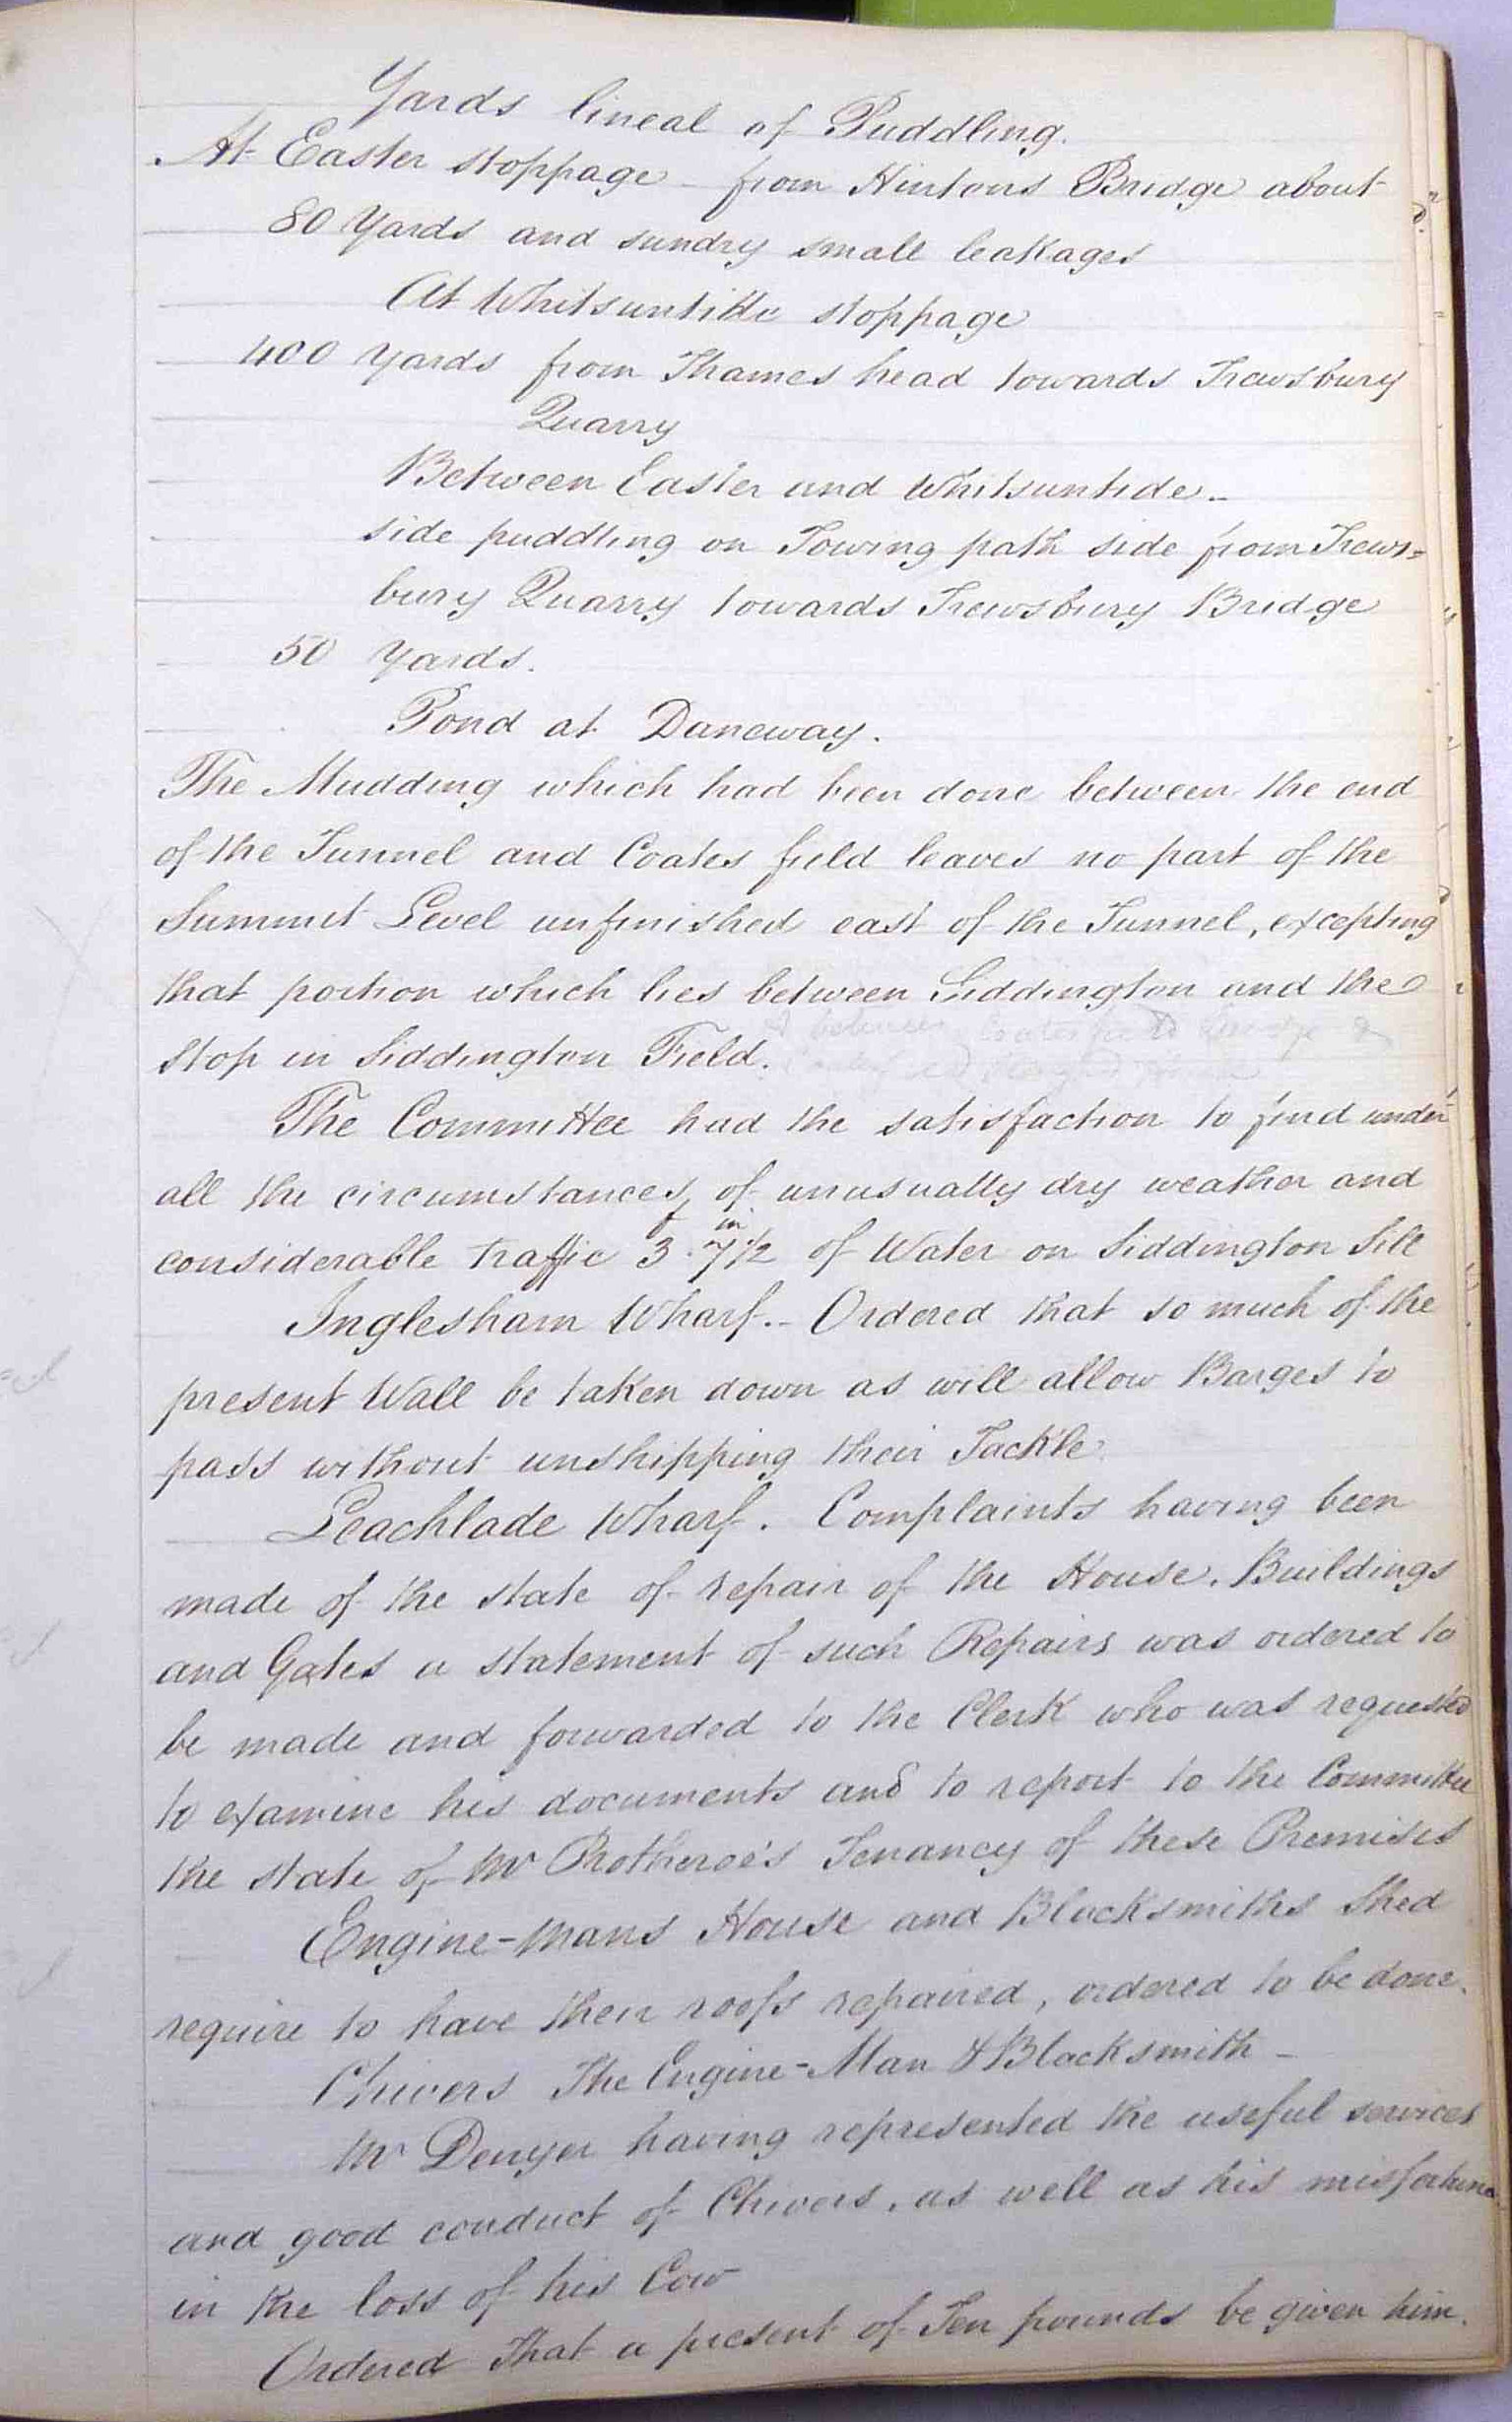 Yards lineal of Puddling.
At Easter stoppage - from Hintons Bridge about
80 Yards and sundry small leakages
At Whitsuntide stoppage
400 Yards from Thames head towards Trewsbury
Quarry
Between Easter and Whitsuntide -
side puddling on Towing path side from Trews=
bury Quarry towards Trewsbury Bridge
50 Yards.
Pond at Daneway.
The Mudding which had been done between the end
of the Tunnel and Coates field leaves no part of the
Summit Level unfinished east of the Tunnel, excepting
that portion which lies between Siddington and the
& between Coates field Bridge &
Stop in Siddington Field.
The Committee had the satisfaction to find under
all the circumstances, of unusually dry weather and
considerable traffic 3 f . 7½ in of Water on Siddington Sill
Inglesham Wharf. - Ordered that so much of the
present Wall be taken down as will allow Barges to
pass without unshipping their Tackle.
Leachlade Wharf. Complaints having been
made of the state of repair of the House, Buildings
and Gates a statement of such Repairs was ordered to
be made and forwarded to the Clerk who was requested
to examine his documents and to report to the Committee
the state of Mr Protheroe's Tenancy of these Premises
Engine-Mans House and Blacksmiths Shed
require to have their roofs repaired, ordered to be done.
Chivers The Engine-Man & Blacksmith -
Mr Denyer having represented the useful services
and good conduct of Chivers, as well as his misfortune
in the loss of his Cow
Ordered That a present of Ten pounds be given him.